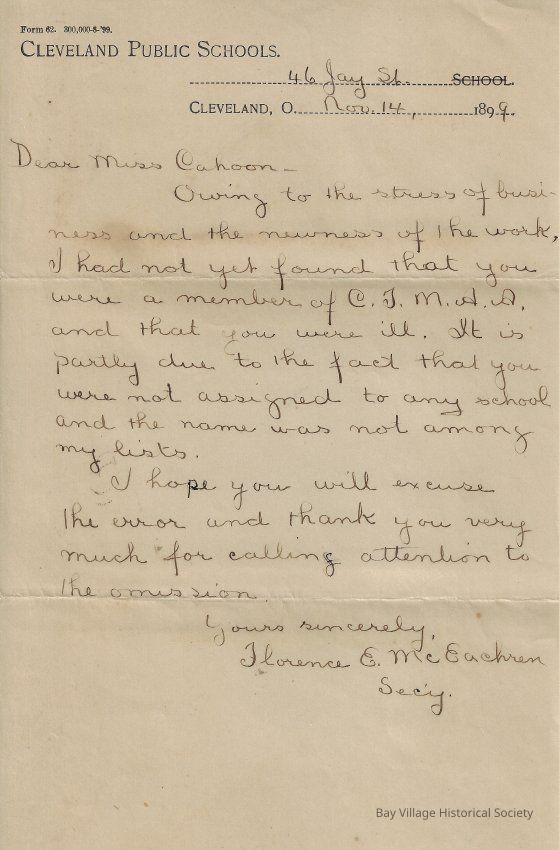 Form 62. 300,000-8-'99.
CLEVELAND PUBLIC SCHOOLS.
46 Jay St. SCHOOL.
CLEVELAND, O. Nov. 14, 1899.
Dear Miss Cahoon –
Owing to the stress of busi-
ness and the newness of the work,
I had not yet found that you
were a member of C. T. M. A. A.
and that you were ill. It is
partly due to the fact that you
were not assigned to any school
and the name was not among
my lists.
I hope you will excuse
the error and thank you very
much for calling attention to
the omission.
Yours sincerely,
Florence E. McEachren
Secy.
Bay Village Historical Society